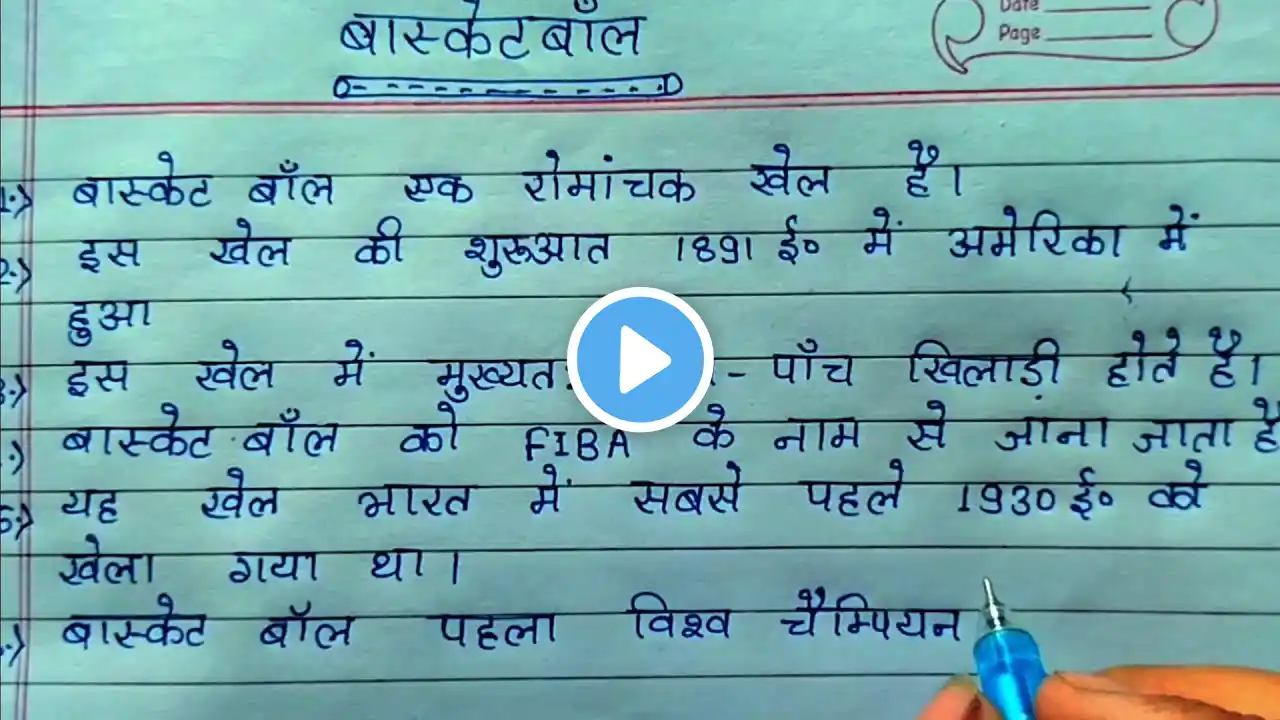 बास्केट बॉल
Date
Page
1.) बास्केट बॉल एक रोमांचक खेल है।
2.) इस खेल की शुरूआत 1891 ई० में अमेरिका में
हुआ
इस खेल में मुख्यतः - पाँच खिलाड़ी होते है।
बास्केट बॉल को FIBA के नाम से जाना जाता है
5.) यह खेल भारत में सबसे पहले 1930 ई० को
खेला गया था।
बास्केट बॉल पहला विश्व चैम्पियन